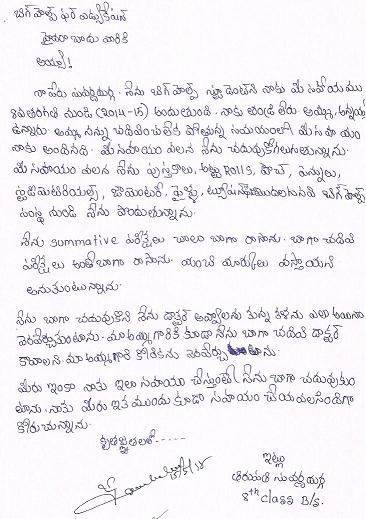 బిగ్ హెల్ప్ ఫర్ ఎడ్యుకేషన్
హైదరాబాదు వారికి
అయ్యా!
నా పేరు సువర్ణదుర్గ. నేను బిగ్ హెల్ప్ స్టూడెంట్ ని నాకు మీ సహాయము
8వ తరగతి నుండి (2014-15) అందుతుంది. నాకు తండ్రి లేరు అమ్మ, అన్నయ్య
ఉన్నారు. అమ్మ నన్ను చదివించలేక పోతున్న సమయంలో మీ సహాయం
నాకు అందినది. మీ సహాయం వలన నేను చదువుకోగలుగుతున్నాను.
మీ సహాయం వలన నేను పుస్తకాలు, అట్టలు Rolls, పౌచ్, పెన్నులు,
స్టడీమెటీరియల్స్, జామెంటరీ, ఫైల్స్, ట్యూషన్ ఫీజు మొదలగునవి బిగ్ హెల్ప్
సంస్థ నుండి నేను పొందుతున్నాను.
నేను summative పరీక్షలు చాలా బాగా రాసాను. బాగా చదివి
పరీక్షలు అన్నీ బాగా రాసాను. మంచి మార్కులు వస్తాయని
అనుకుంటున్నాను.
నేను బాగా చదువుకొని నేను డాక్టర్ అవ్వాలనుకున్న కలను ఎలా అయినా
నెరవేర్చుకుంటాను. మా అమ్మగారికి కూడా నేను బాగా చదివి డాక్టర్
కావాలని. మా అమ్మగారి కోరికను నెరవేర్చుతాను.
మీరు ఇంకా నాకు ఇలా సహాయం చేస్తుంటే నేను బాగా చదువుకుం
టాను. నాకు మీరు ఇక ముందు కూడా సహాయం చేయవలసిందిగా
కోరుచున్నాను.
కృతజ్ఞతలతో-----
ఇట్లు
తిరుపతి సువర్ణదుర్గ
8th class B/s.